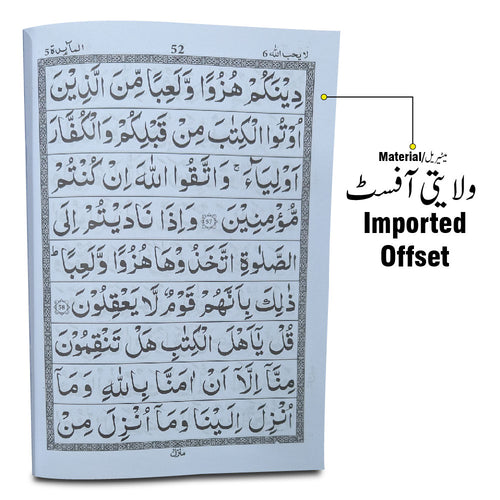 لا یحب اللہ ۶ 52 المآىِٕدۃ ۵
دِیْنَكُمْ هُزُوًا وَّ لَعِبًا مِّنَ الَّذِیْنَ
اُوْتُوا الْكِتٰبَ مِنْ قَبْلِكُمْ وَ الْكُفَّارَ
اَوْلِیَآءَ ۚ وَ اتَّقُوا اللّٰهَ اِنْ كُنْتُمْ
مُّؤْمِنِیْنَ ۝57 وَ اِذَا نَادَیْتُمْ اِلَى
الصَّلٰوةِ اتَّخَذُوْهَا هُزُوًا وَّ لَعِبًا ؕ
ذٰلِكَ بِاَنَّهُمْ قَوْمٌ لَّا یَعْقِلُوْنَ ۝58
قُلْ یٰۤاَهْلَ الْكِتٰبِ هَلْ تَنْقِمُوْنَ
مِنَّاۤ اِلَّاۤ اَنْ اٰمَنَّا بِاللّٰهِ وَ مَاۤ
اُنْزِلَ اِلَیْنَا وَ مَاۤ اُنْزِلَ مِنْ
منزل
Material/میٹیریل
ولایتی آفسٹ
Imported
Offset